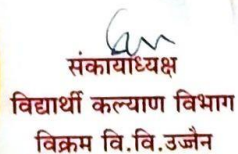 संकायाध्यक्ष
विद्यार्थी कल्याण विभाग
विक्रम वि.वि.उज्जैन